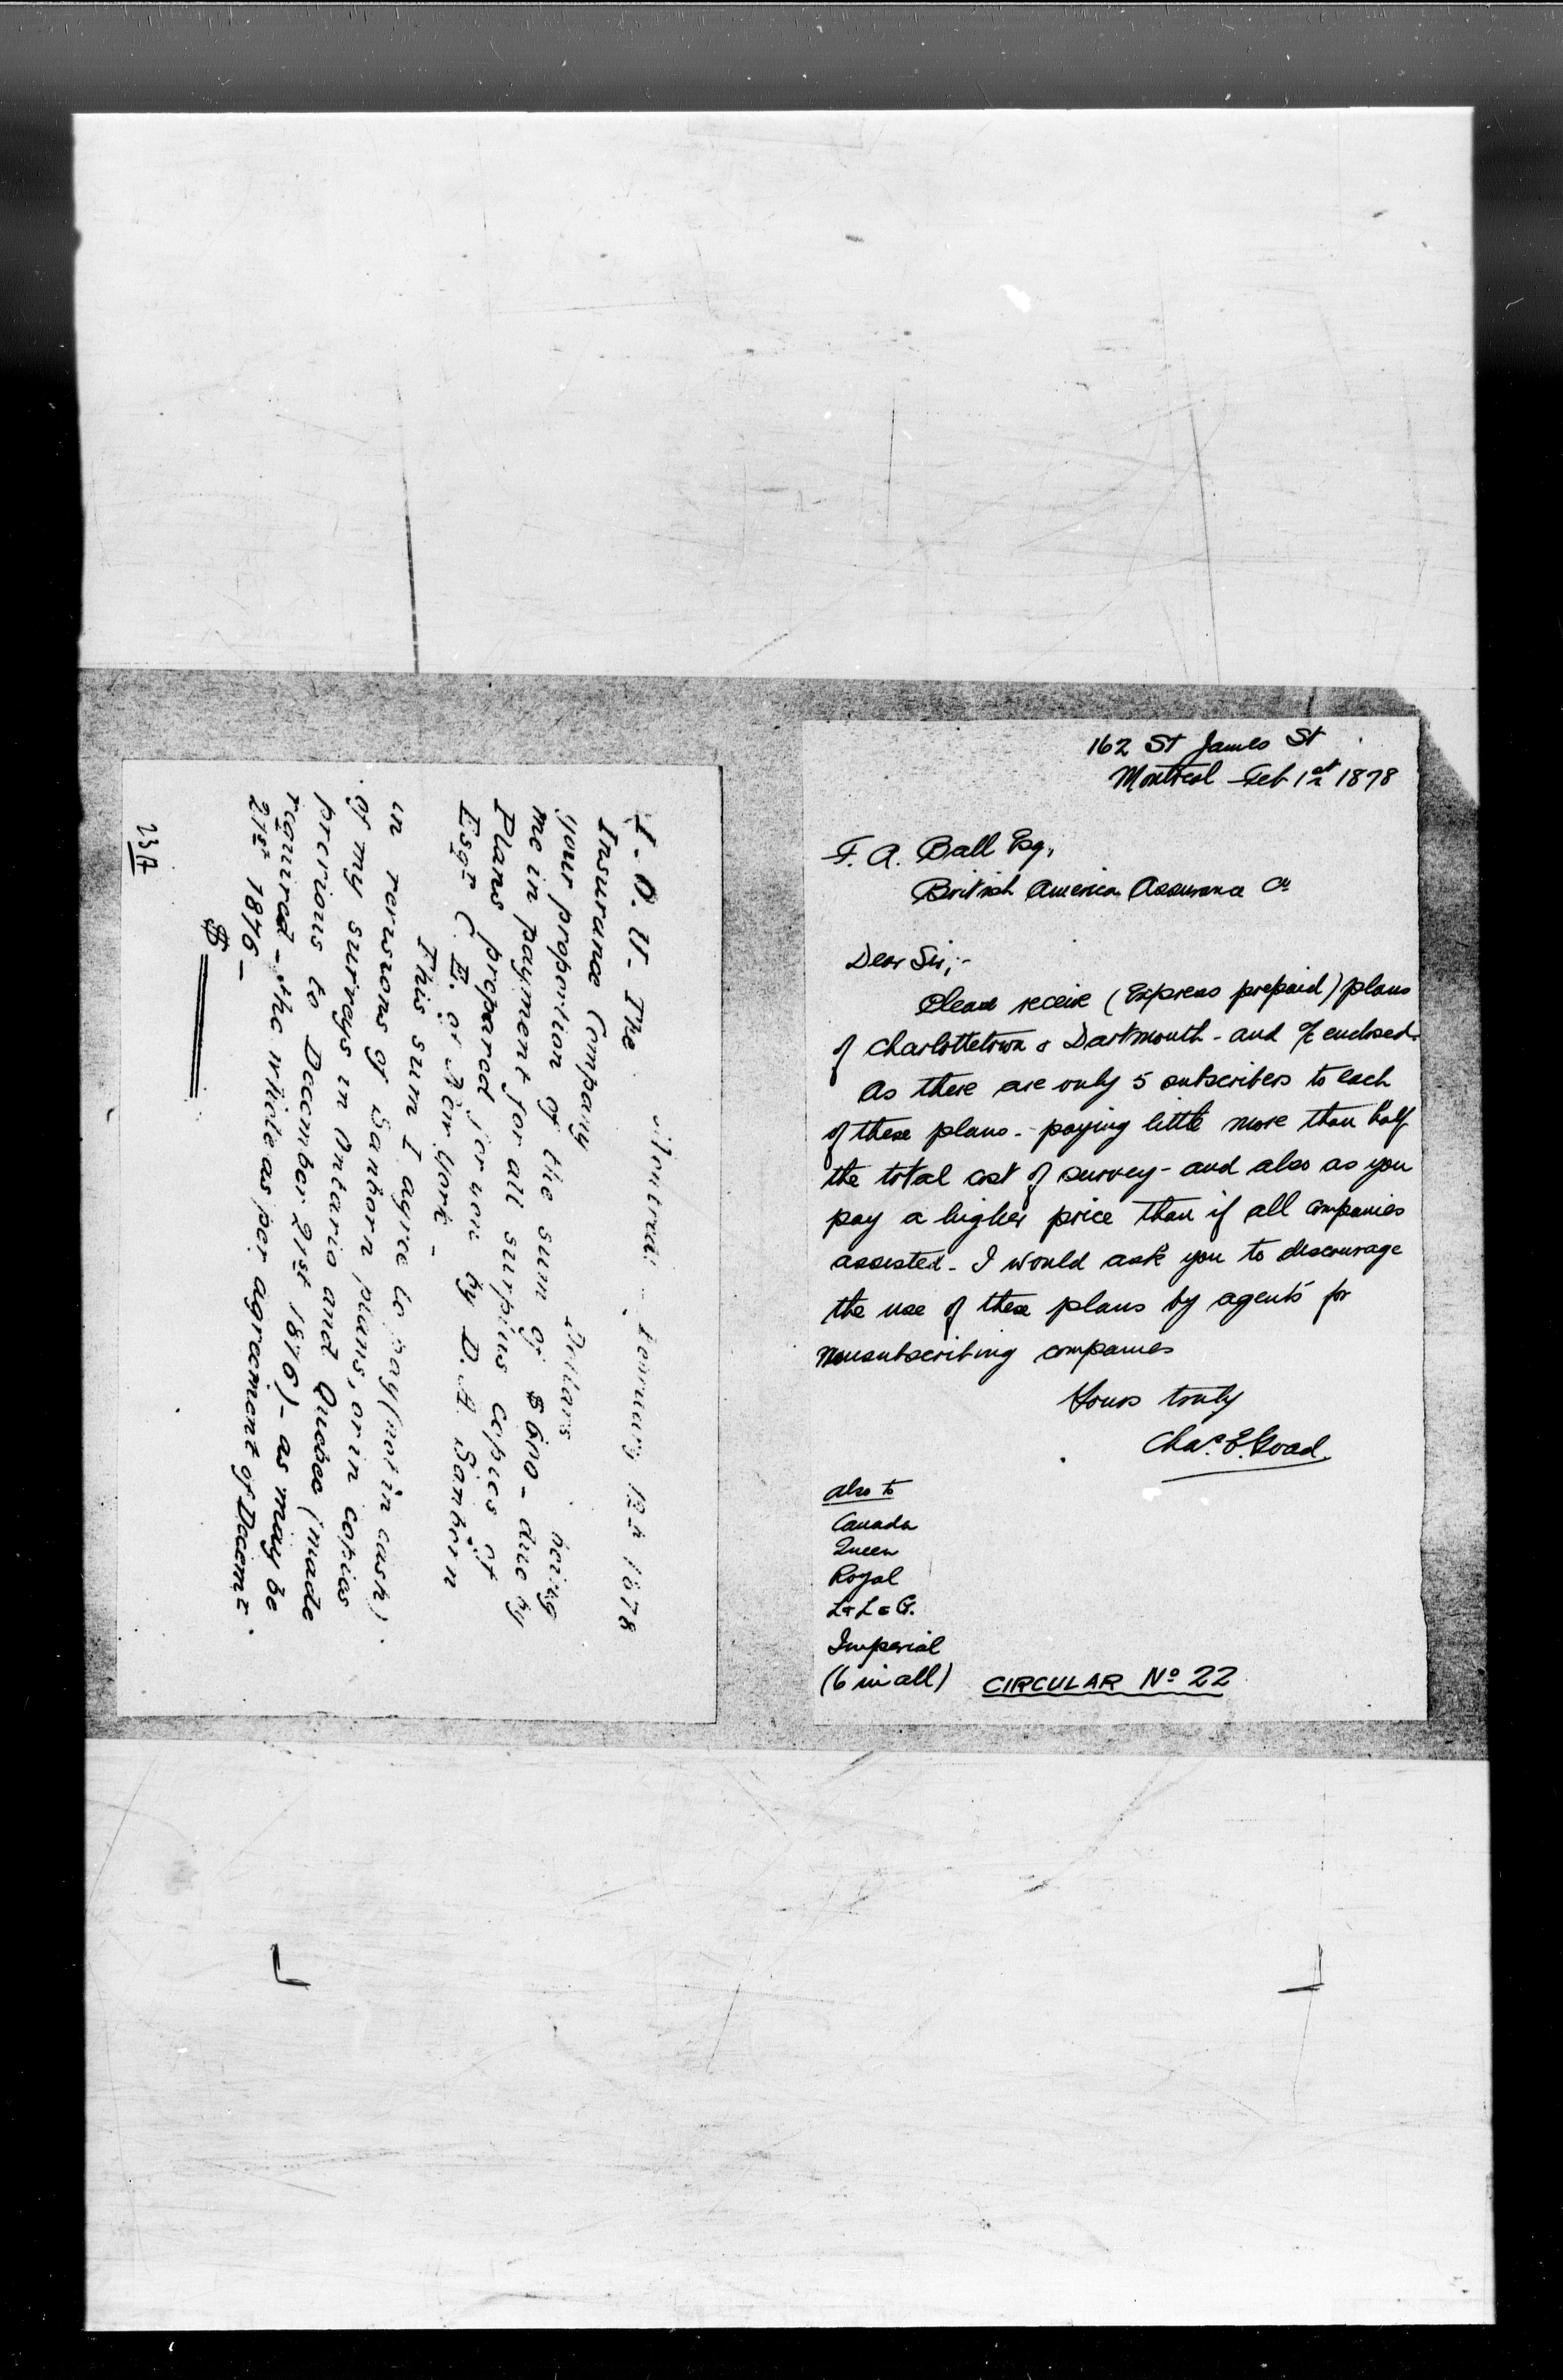 162 St James St
Montreal Feb 1st 1878
F. A. Ball Esq,
British America Assurance Co
Dear Sir,-
Please receive (Express prepaid) plans
of Charlottetown & Dartmouth - and a/c enclosed.
As there are only 5 subscribers to each
of these plans - paying little more than half
the total cost of survey - and also as you
pay a higher price than if all companies
assisted - I would ask you to discourage
the use of these plans by agents for
nonsubscribing companies
Yours truly
Chas. E. Goad.
also to
Canada
Queen
Royal
L & L & G.
Imperial
(6 in all)
CIRCULAR No 22
Montreal February 12th 1878
I. O. U. The
Insurance Company Dollars being
your proportion of the sum of $600 - due by
me in payment for all surplus copies of
Plans prepared for you by D. A. Sanborn
Esqr C. E. of New York -
This sum I agree to pay (not in cash)
in revisions of Sanborn plans, or in copies
of my surveys in Ontario and Quebec (made
previous to December 21st 1876) - as may be
required - the whole as per agreement of Decemr.
21st 1876 -
$
23A